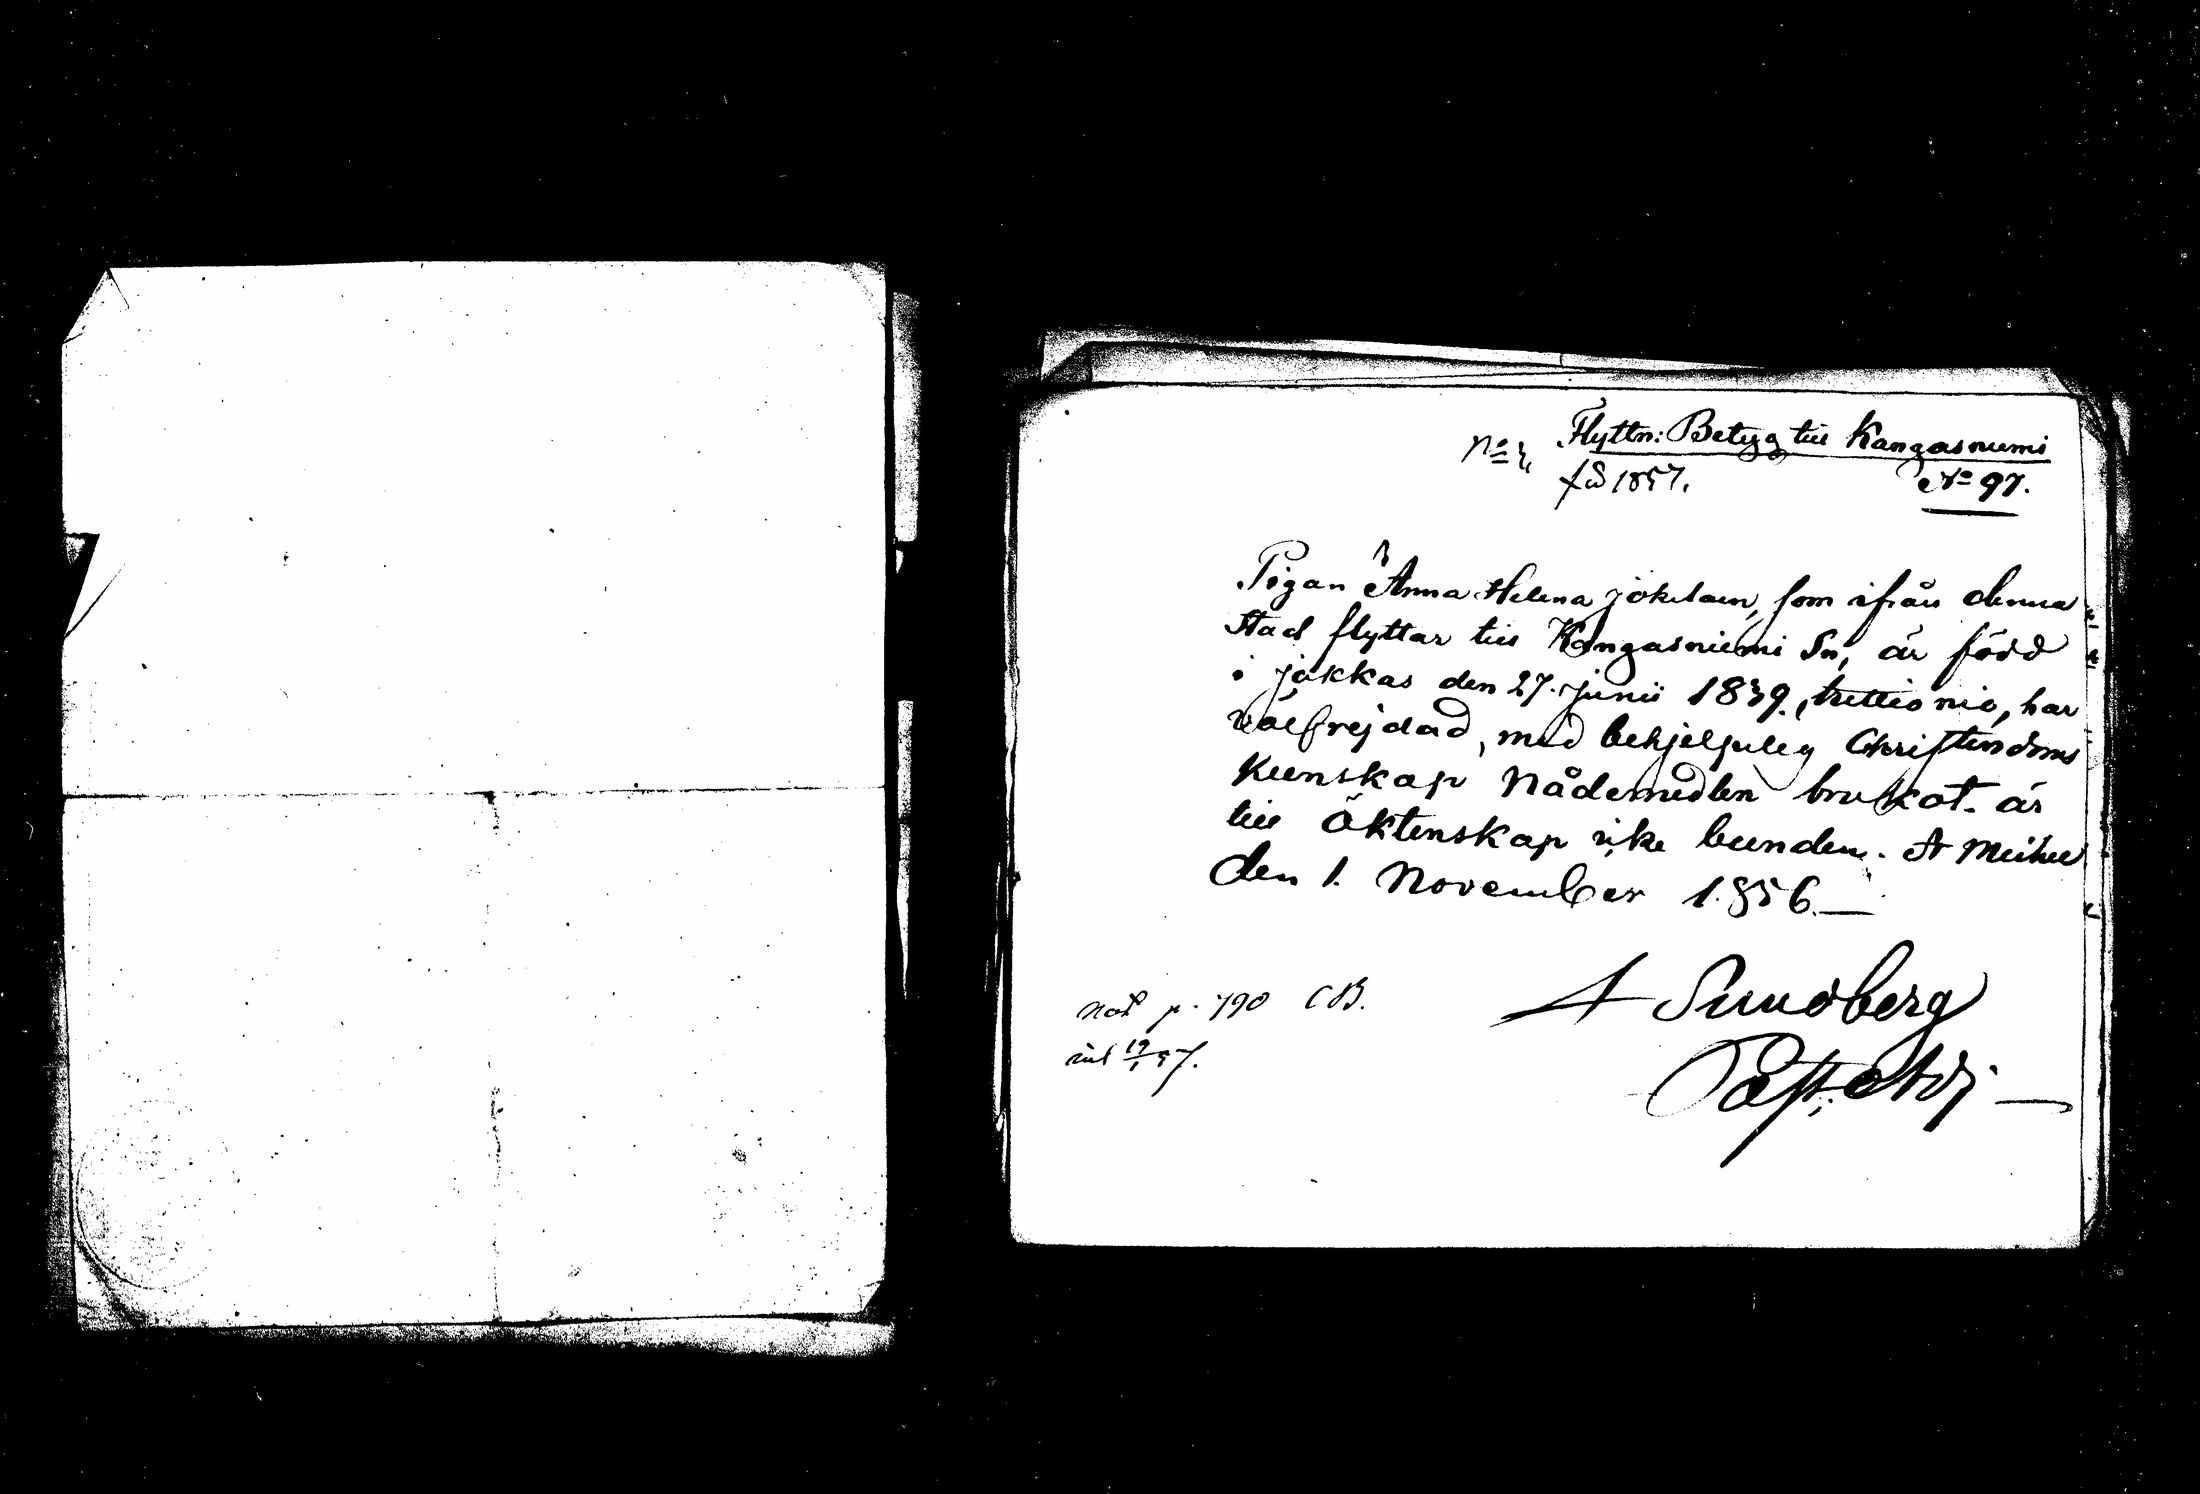 Flyttn: Betyg till Kangasniemi
No 97.
fö 1857.
Pigan Anna Helena Jokelain, som ifrån denna
Stad flyttar till Kangasniemi Sn, är född
i Jokkas den 27. Junii 1839, trettionio, har
välfrejdad, med behjelpelig Christendoms
Kunskap Nådemedlen brukat. är
till Äktenskap icke bunden. St Michel
den 1. November 1856.—
A Sundberg
Past: Adj—
not p. 790 CB.